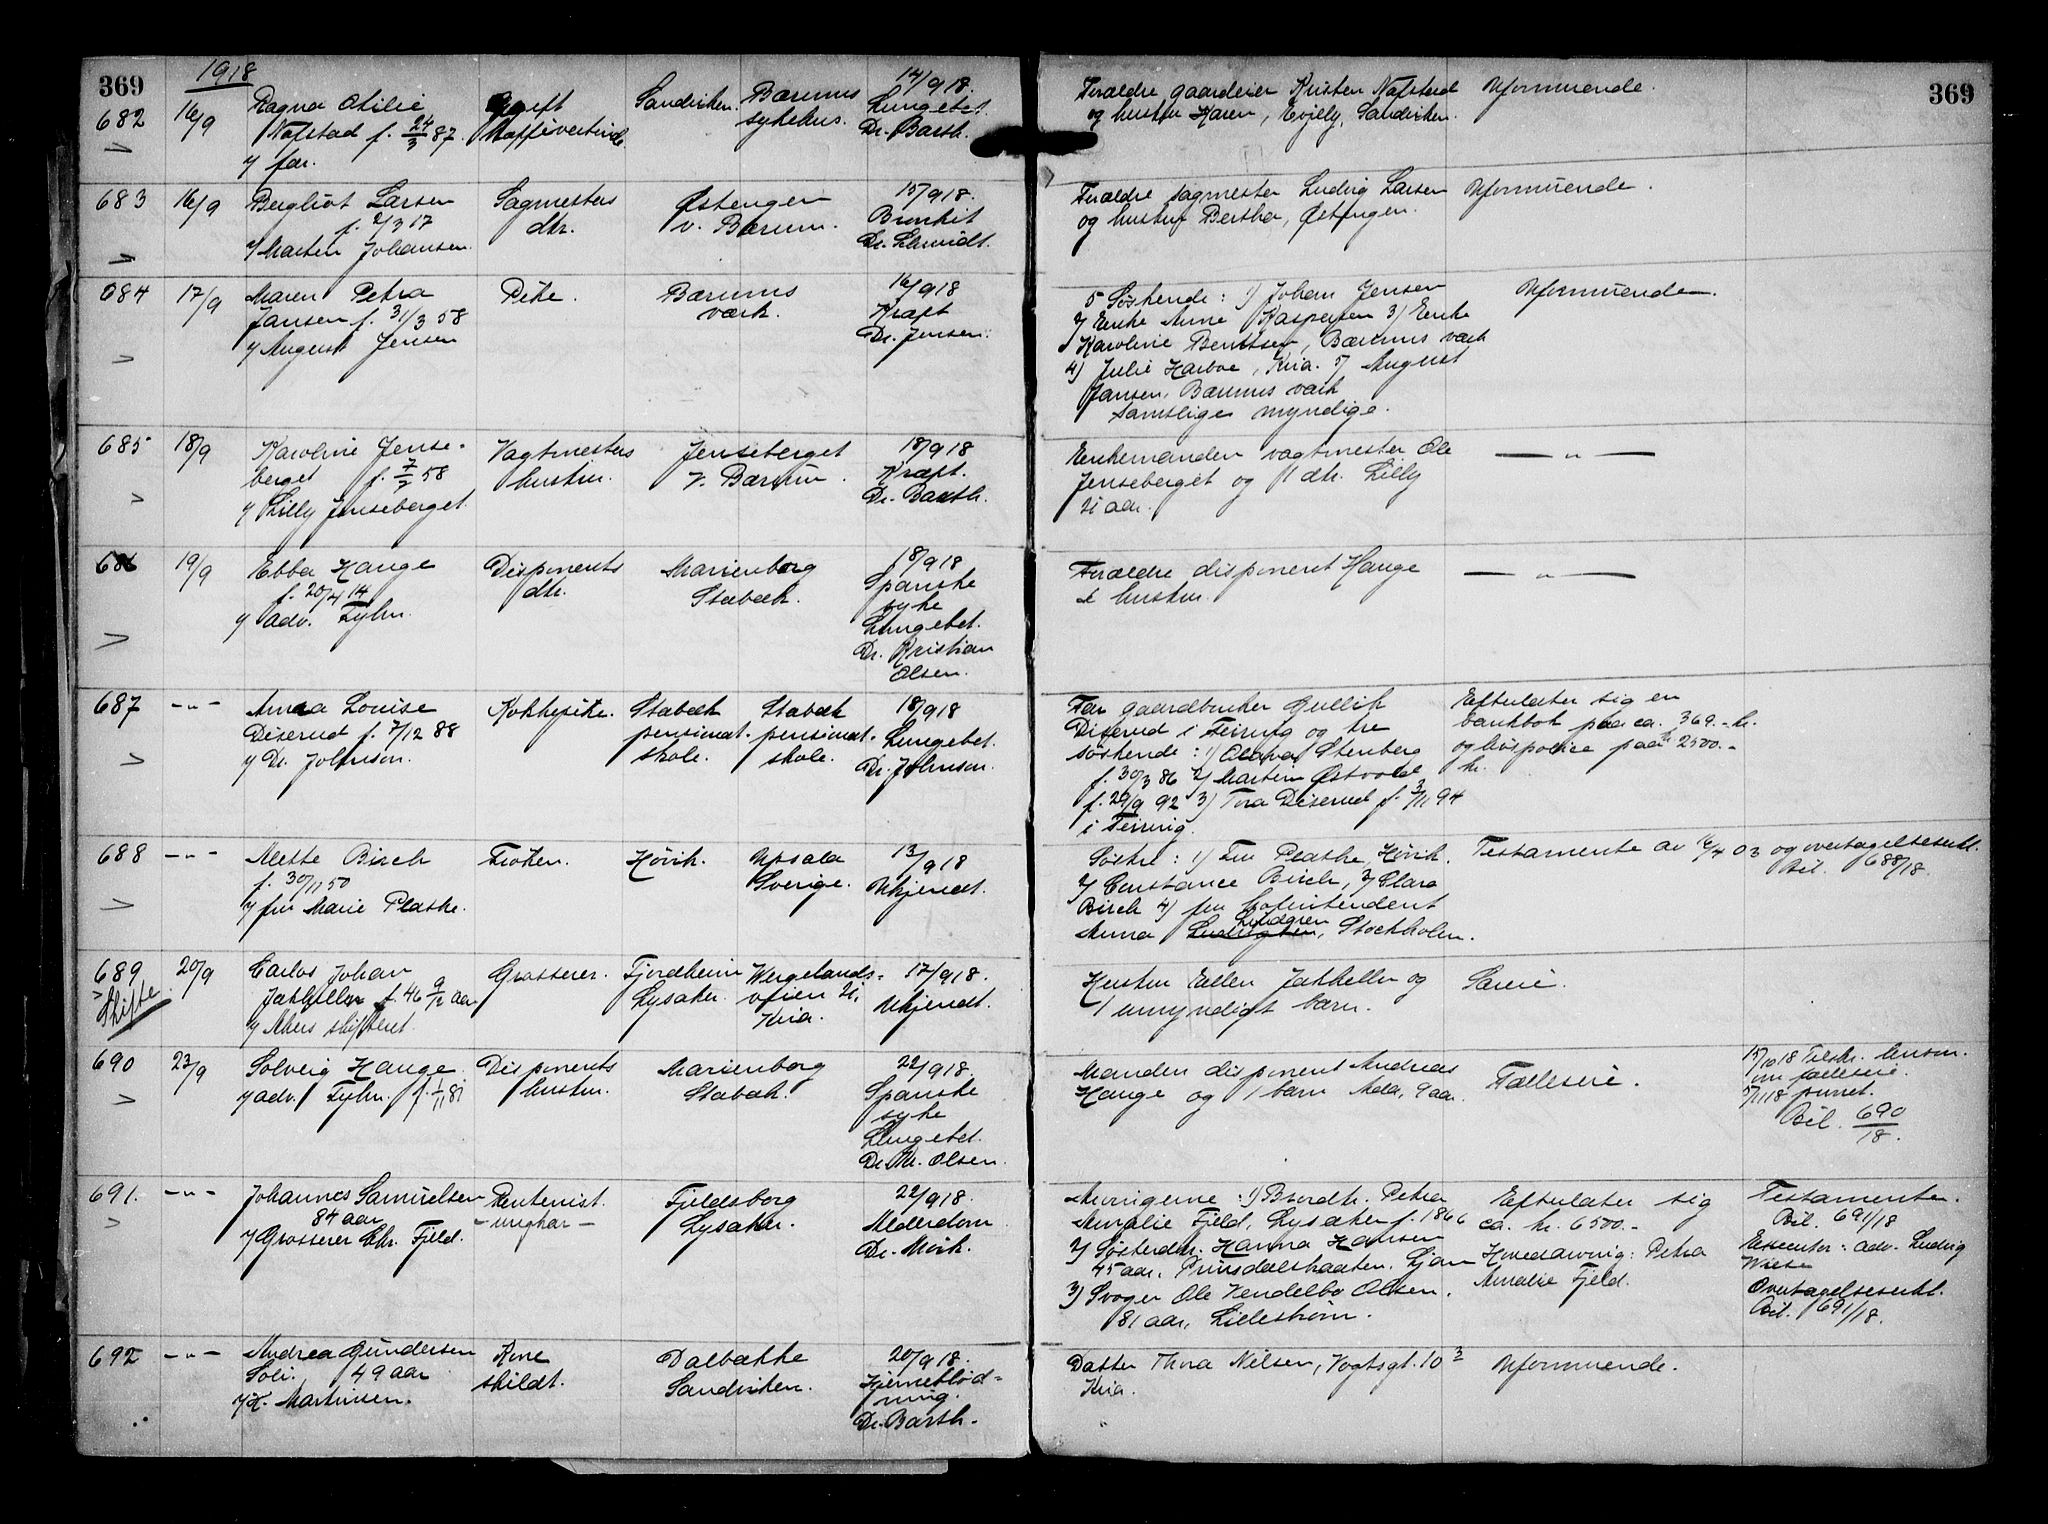 369
1918
369
682
16/9
Ragna Otilie
Nafstad f. 24/3 87.
v/ far.
Ugift
Kaffivertinde
Sandviken.
Bærums
sykehus.
14/9 18.
Lungebet.
Dr. Barth.
Forældre gaardeier Kristen Nafstad
og hustru Karen, Sandviken.
Uformuende.
683
16/9
Bergliot Larsen
f. 2/3 17
v/ Marten Johansen.
Sagmesters
dtr.
Østengen
v. Bærum.
15/9 18.
Bronkit
Dr. Schmidt.
Forældre sagmester Ludvig Larsen
og hustru Bertha, Østengen.
Uformuende.
684
17/9
Maren Petra
Jansen f. 31/3 58
v/ August Jensen
Pike.
Bærums
værk.
16/9 18
Kræft
Dr. Jensen.
5 Søskende: 1) Johan Jensen
2) Enke Anne Kaspersen 3) Enke
Karoline Berntsen, Bærums værk
4) Julie Harboe, Kria. 5) August
Jansen, Bærums værk
samtlige myndige.
Uformuende.
685
18/9
Karoline Jense-
berget f. 7/7 58
v/ Lilly Jenseberget.
Vagtmesters
hustru.
Jenseberget
v. Bærum.
18/9 18
Kræft.
Dr. Barth.
Enkemanden vagtmester Ole
Jenseberget og 1 dtr. Lilly
21 aar.
— " —
686
19/9
Ebba Hauge
f. 20/4 14
v/ adv. Fyhn.
Disponents
dtr.
Marienborg
Stabæk.
18/9 18
Spanske
syke
Lungebet.
Dr. Kristian
Olsen.
Forældre disponent Hauge
& hustru.
— " —
687
- " -
Anna Louise
Diserud f. 7/12 88
v/ Dr. Johnson.
Kokkepike.
Stabæk
pensionat-
skole.
Stabæk
pensionat-
skole.
18/9 18
Lungebet.
Dr. Johnson.
Far gaardbruker Gullik
Diserud i Feiring og tre
søskende: 1) Olava Stenberg
f. 30/3 86 2) Martin Østvold
f. 29/9 92 3) Tora Diserud f. 3/11 94
i Feiring.
Efterlater sig en
bankbok paa ca. 369.- kr.
og livspolice paa kr. 2500.-
kr.
688
- " -
Mette Birch
f. 30/11 50
v/ fru Marie Plaske.
Frøken.
Høvik.
Upsala
Sverige.
13/9 18
Ukjendt.
Søstre: 1) Fru Plaske, Høvik.
2) Constance Birch, 3) Clara
Birch 4) fru hofintendent
Anna Lindgren, Stockholm.
Testamente av 16/4 03 og overtagelseserkl.
Bil. 688/18.
689
Skifte
20/9
Carlos Johan
Jakhelln f. 46 9/12 aar
v/ Akers skifteret.
Grosserer.
Fjordheim
Lysaker.
Wergelands-
veien 21,
Kria.
17/9 18.
Ukjendt.
Hustru Ellen Jakhelln og
1 umyndigt barn.
Særeie.
690
23/9
Solveig Hauge
v/ adv. Fyhn. f. 1/11 81
Disponents
hustru.
Marienborg
Stabæk.
22/9 18.
Spanske
syke
Lungebet.
Dr. Kr. Olsen.
Manden disponent Andreas
Hauge og 1 barn Ada, 9 aar.
Fælleseie.
15/10 18 Tilskr. lensm.
om fælleseie.
5/11 18 purret.
Bil. 690/18.
691.
- " -
Johannes Samuelsen
84 aar
v/ Grosserer Chr. Fjeld.
Rentenist.
- ungkar -
Fjeldsborg
Lysaker.
22/9 18.
Alderdom
Dr. Mørk.
Arvingerne: 1) Brordtr. Petra
Amalie Fjeld, Lysaker f. 1866
2) Søsterdtr. Hanna Hansen
45 aar, Prinsdalsbraaten. Ljan
3) Svoger Ole Vendelbo Olsen.
81 aar, Lillestrøm.
Efterlater sig
ca. kr. 6500.-
Hovedarving: Petra
Amalie Fjeld.
Testamente.
Bil. 691/18
Executor: adv. Ludvig
Overtagelseserkl.
Bil. 691/18.
692
- " -
Andrea Gundersen
Soli. 49 aar
v/ K. Martinsen.
Kone
skildt.
Dalbække
Sandviken.
20/9 18.
Hjerneblød-
ning.
Dr. Barth.
Datter Thora Nilsen, Vogtsgt. 10 3
Kria.
Uformuende.